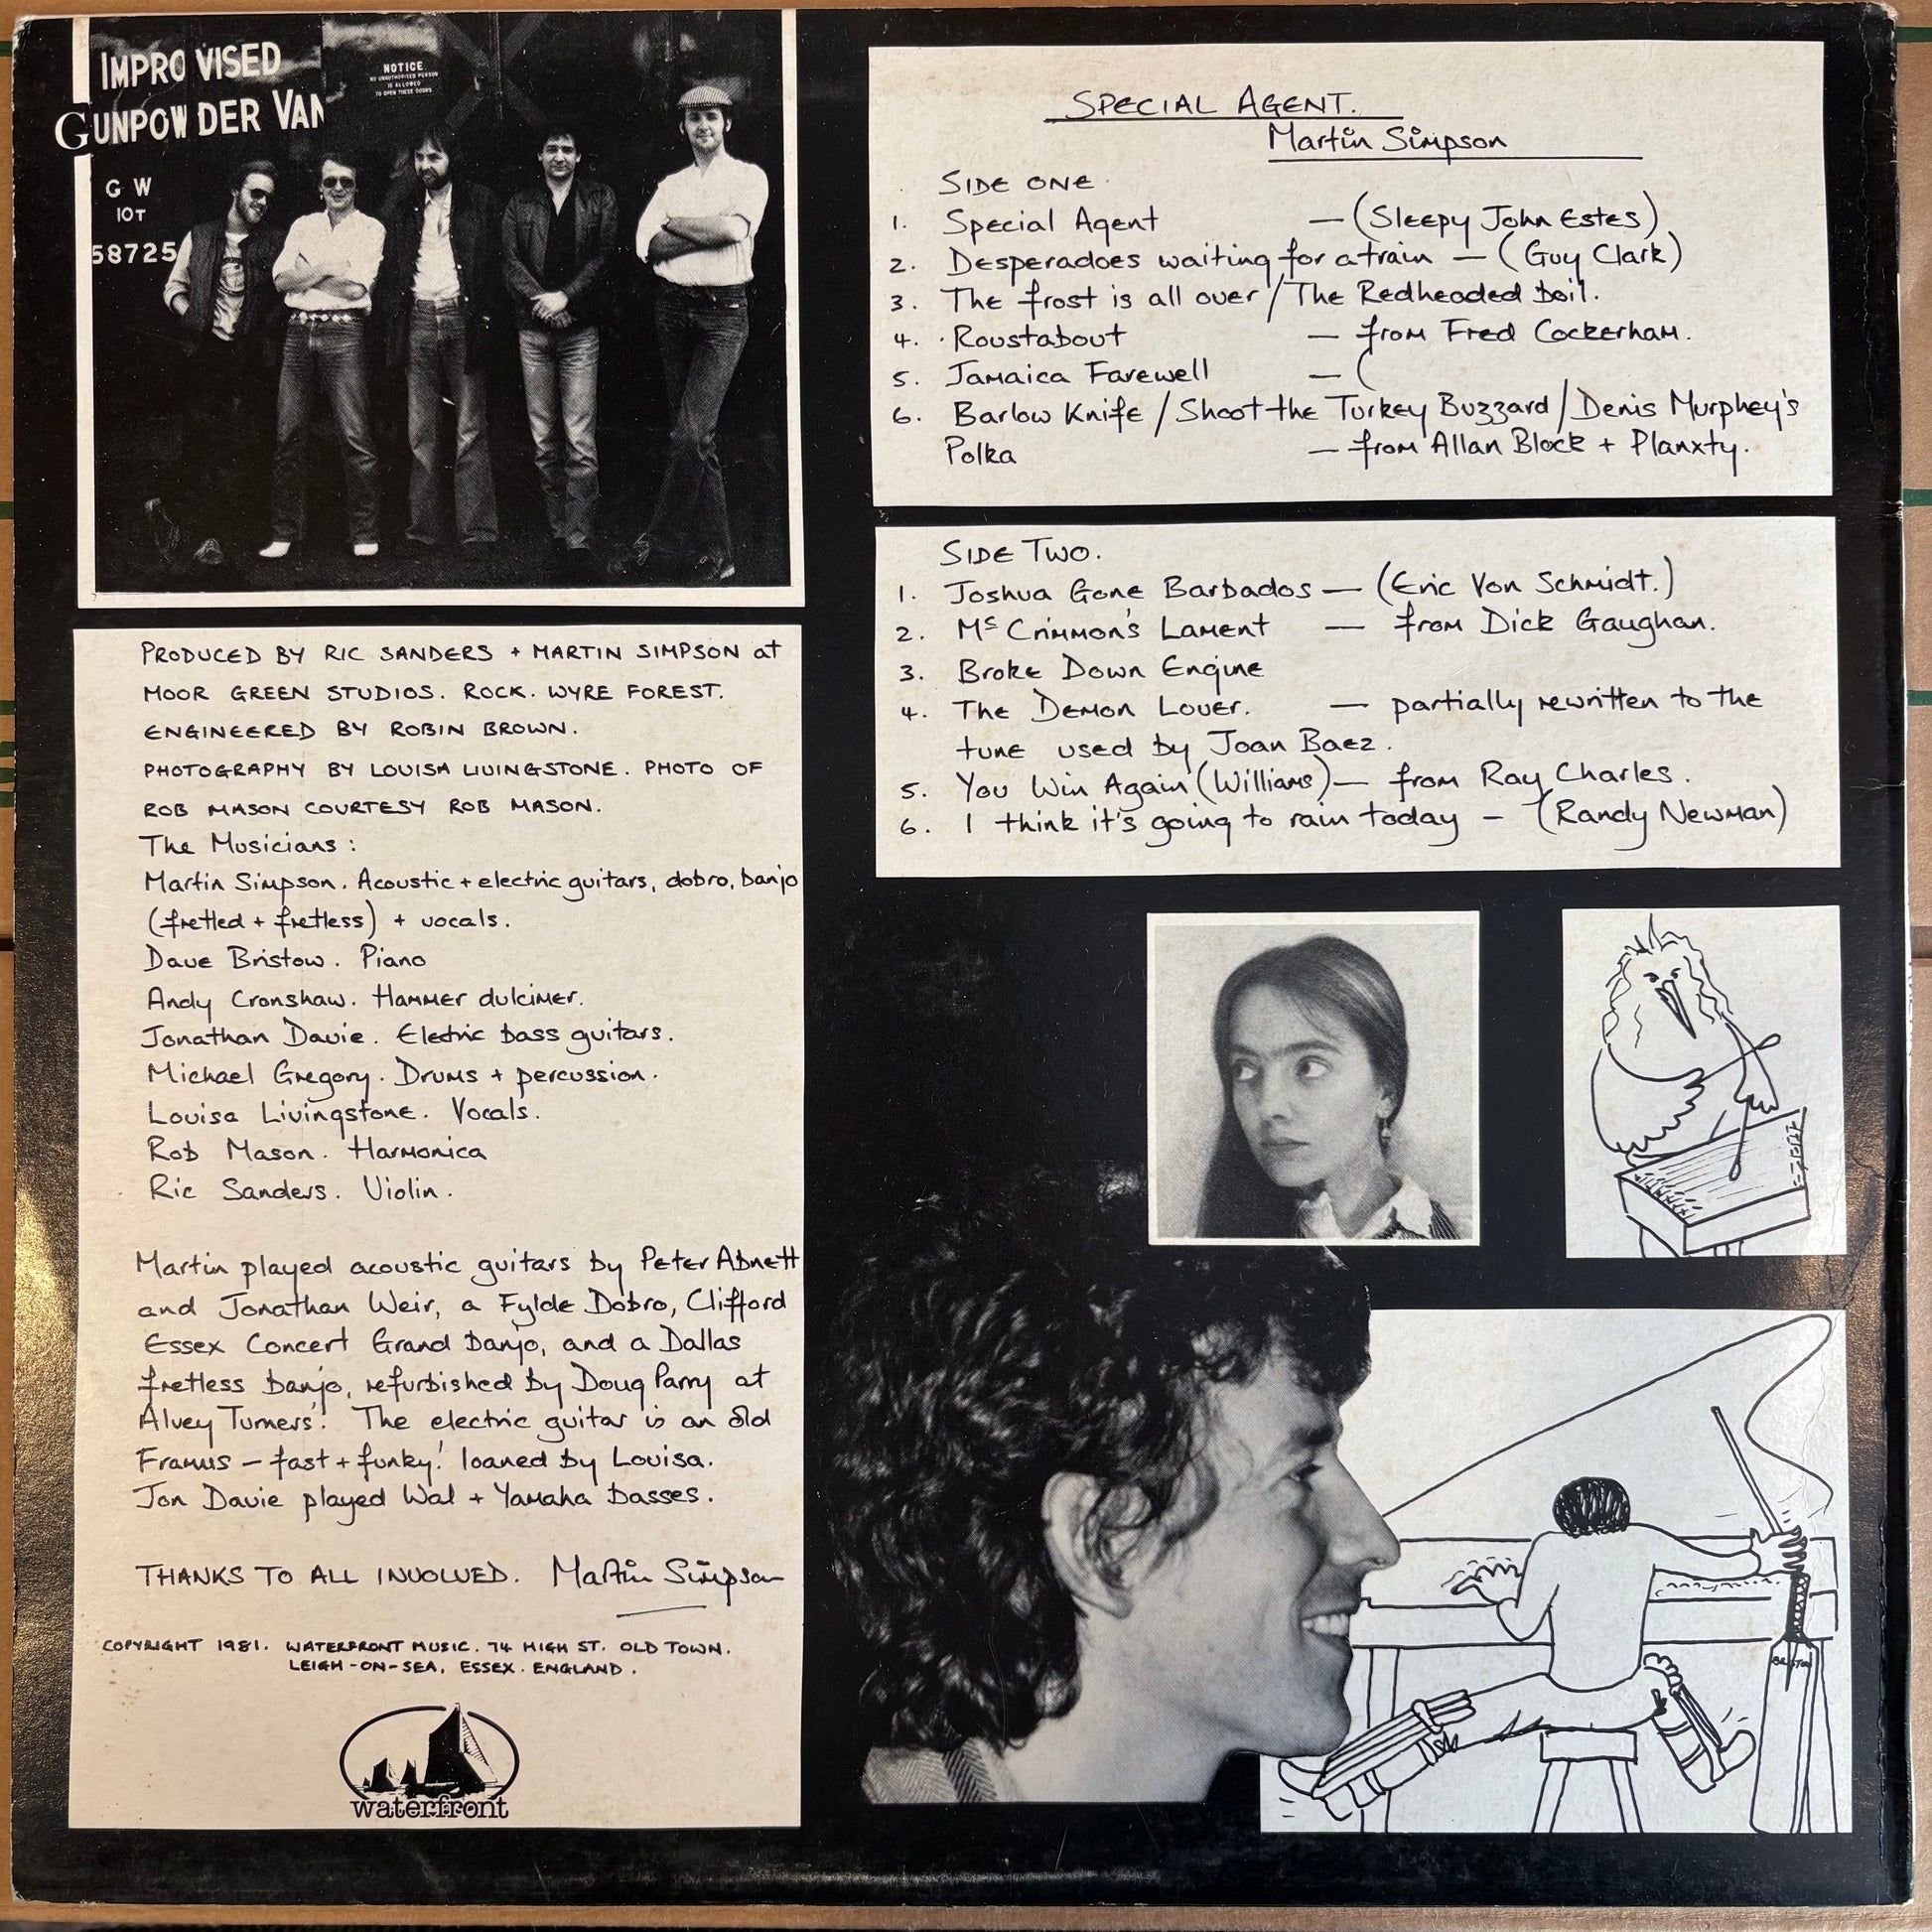 IMPROVISED
GUNPOWDER VAN
NOTICE
NO UNAUTHORISED PERSON
IS ALLOWED
TO OPEN THESE DOORS
G W
10T
58725
PRODUCED BY RIC SANDERS + MARTIN SIMPSON at
MOOR GREEN STUDIOS. ROCK. WYRE FOREST.
ENGINEERED BY ROBIN BROWN.
PHOTOGRAPHY BY LOUISA LIVINGSTONE. PHOTO OF
ROB MASON COURTESY ROB MASON.
The Musicians:
Martin Simpson. Acoustic + electric guitars, dobro, banjo
(fretted + fretless) + vocals.
Dave Bristow. Piano
Andy Cronshaw. Hammer dulcimer.
Jonathan Davie. Electric bass guitars.
Michael Gregory. Drums + percussion.
Louisa Livingstone. Vocals.
Rob Mason. Harmonica
Ric Sanders. Violin.
Martin played acoustic guitars by Peter Abnett
and Jonathan Weir, a Fylde Dobro, Clifford
Essex Concert Grand banjo, and a Dallas
fretless banjo, refurbished by Doug Parry at
Alvey Turners'. The electric guitar is an old
Framus - fast + funky! loaned by Louisa.
Jon Davie played Wal + Yamaha basses.
THANKS TO ALL INVOLVED. Martin Simpson
COPYRIGHT 1981. WATERFRONT MUSIC. 74 HIGH ST. OLD TOWN.
LEIGH-ON-SEA, ESSEX. ENGLAND.
waterfront
SPECIAL AGENT.
Martin Simpson
SIDE ONE
1. Special Agent — (Sleepy John Estes)
2. Desperadoes waiting for a train — (Guy Clark)
3. The frost is all over / The Redheaded boil.
4. Roustabout — from Fred Cockerham.
5. Jamaica Farewell — (
6. Barlow Knife / Shoot the Turkey Buzzard / Denis Murphey's
Polka — from Allan Block + Planxty.
SIDE TWO.
1. Joshua Gone Barbados — (Eric Von Schmidt.)
2. Mc Crimmon's Lament — from Dick Gaughan.
3. Broke Down Engine
4. The Demon Lover. — partially rewritten to the
tune used by Joan Baez.
5. You Win Again (Williams) — from Ray Charles.
6. I think it's going to rain today - (Randy Newman)